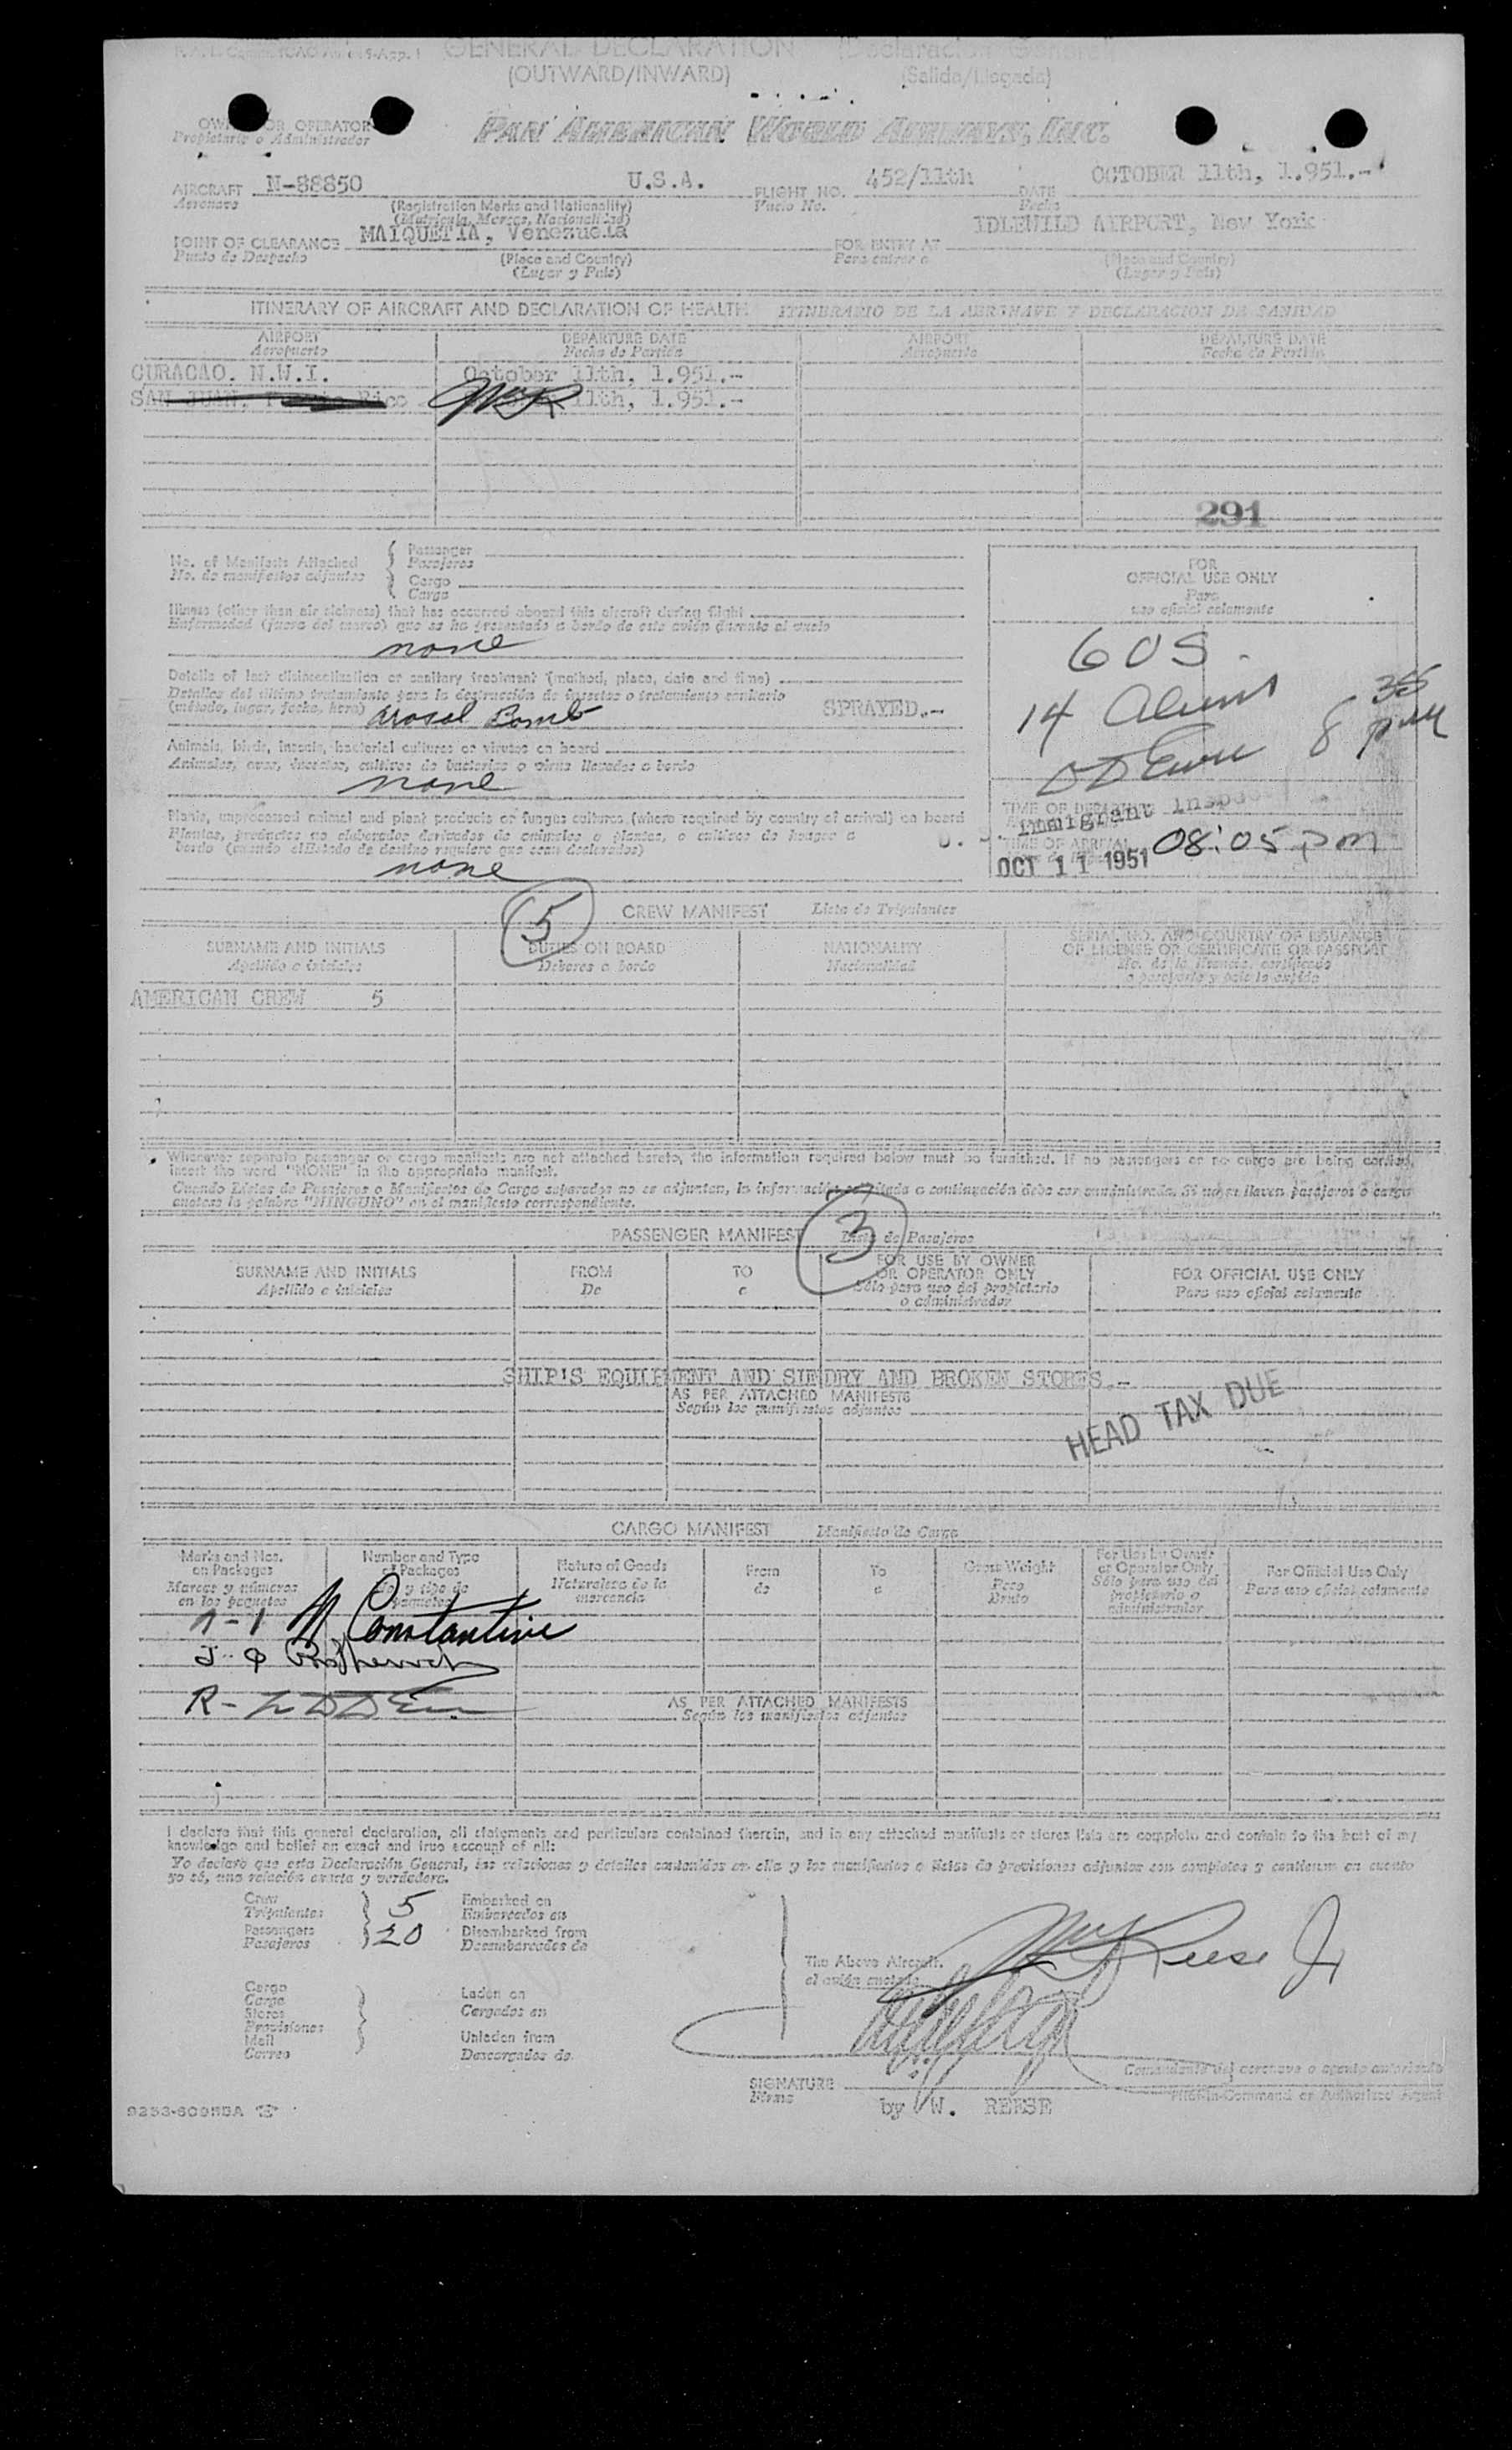 GENERAL DECLARATION (Declaración General)
(OUTWARD/INWARD) (Salida/Llegada)
OWNER OR OPERATOR PAN AMERICAN WORLD AIRWAYS, INC.
Propietario o Administrador
AIRCRAFT N-88850 U.S.A. FLIGHT NO. 452/11th DATE OCTOBER 11th, 1.951.-
Aeronave (Registration Marks and Nationality) Vuelo No. Fecha
(Matrícula, Marcas, Nacionalidad)
POINT OF CLEARANCE MAIQUETIA, Venezuela FOR ENTRY AT IDLEWILD AIRPORT, New York
Punto de Despacho (Place and Country) Para entrar a (Place and Country)
(Lugar y País) (Lugar y País)
ITINERARY OF AIRCRAFT AND DECLARATION OF HEALTH ITINERARIO DE LA AERONAVE Y DECLARACION DE SANIDAD
AIRPORT DEPARTURE DATE AIRPORT DEPARTURE DATE
Aeropuerto Fecha de Partida Aeropuerto Fecha de Partida
CURACAO. N.W.I. October 11th, 1.951.-
SAN JUAN, Puerto Rico 11th, 1.951.-
291
No. of Manifests Attached Passenger
No. de manifiestos adjuntos Pasajeros
Cargo
Carga
FOR
OFFICIAL USE ONLY
Para
uso oficial solamente
Illness (other than air sickness) that has occurred aboard this aircraft during flight
Enfermedad (fuera del mareo) que se ha presentado a bordo de este avión durante el vuelo
none
60S.
Details of last disinsectization or sanitary treatment (method, place, date and time)
Detalles del último tratamiento para la destrucción de insectos o tratamiento sanitario
(método, lugar, fecha, hora) Arosol Bomb SPRAYED.-
14 Aliens 8 35 PM
Animals, birds, insects, bacterial cultures or viruses on board
Animales, aves, insectos, cultivos de bacterias o virus llevados a bordo
none
Plants, unprocessed animal and plant products or fungus cultures (where required by country of arrival) on board
Plantas, productos no elaborados derivados de animales o plantas, o cultivos de hongos a
bordo (cuando el Estado de destino requiere que sean declarados)
none
TIME OF DEPARTURE
Immigrant Inspector
TIME OF ARRIVAL 08:05 pm
OCT 11 1951
5 CREW MANIFEST Lista de Tripulantes
SURNAME AND INITIALS DUTIES ON BOARD NATIONALITY SERIAL NO. AND COUNTRY OF ISSUANCE
OF LICENSE OR CERTIFICATE OR PASSPORT
Apellido e iniciales Deberes a bordo Nacionalidad No. de la licencia, certificado
o pasaporte y país lo expide
AMERICAN CREW 5
Whenever separate passenger or cargo manifests are not attached hereto, the information required below must be furnished. If no passengers or no cargo are being carried,
insert the word "NONE" in the appropriate manifest.
Cuando Listas de Pasajeros o Manifiestos de Cargo separados no se adjuntan, la información solicitada a continuación debe ser suministrada. Si no se llevan pasajeros o carga
anótese la palabra "NINGUNO" en el manifiesto correspondiente.
PASSENGER MANIFEST 3 Lista de Pasajeros
SURNAME AND INITIALS FROM TO FOR USE BY OWNER
OR OPERATOR ONLY FOR OFFICIAL USE ONLY
Apellido e iniciales De a Sólo para uso del propietario
o administrador Para uso oficial solamente
SHIP'S EQUIPMENT AND SUNDRY AND BROKEN STORES.-
AS PER ATTACHED MANIFESTS
Según los manifiestos adjuntos
HEAD TAX DUE
CARGO MANIFEST Manifiesto de Carga
Marks and Nos.
on Packages
Marcas y números
en los paquetes
Number and Type
of Packages
No. y tipo de
paquetes
Nature of Goods
Naturaleza de la
mercancía
From
de
To
a
Gross Weight
Peso
Bruto
For Use by Owner
or Operator Only
Sólo para uso del
propietario o
administrador
For Official Use Only
Para uso oficial solamente
Constantine
R-
AS PER ATTACHED MANIFESTS
Según los manifiestos adjuntos
I declare that this general declaration, all statements and particulars contained therein, and in any attached manifests or stores lists are complete and contain to the best of my
knowledge and belief an exact and true account of all:
Yo declaro que esta Declaración General, las relaciones y detalles contenidos en ella y los manifiestos o listas de provisiones adjuntas son completos y contienen en cuanto
yo sé, una relación exacta y verdadera.
Crew 5 Embarked on
Tripulantes Embarcados en
Passengers 20 Disembarked from
Pasajeros Desembarcados de
The Above Aircraft.
el avión anotado
Reese Jr
Cargo
Carga
Stores
Provisiones
Mail
Correo
Laden on
Cargados en
Unladen from
Descargados de.
Comandante del aeronave o agente autorizado
SIGNATURE
Firma
Pilot-in-Command or Authorized Agent
by W. REESE